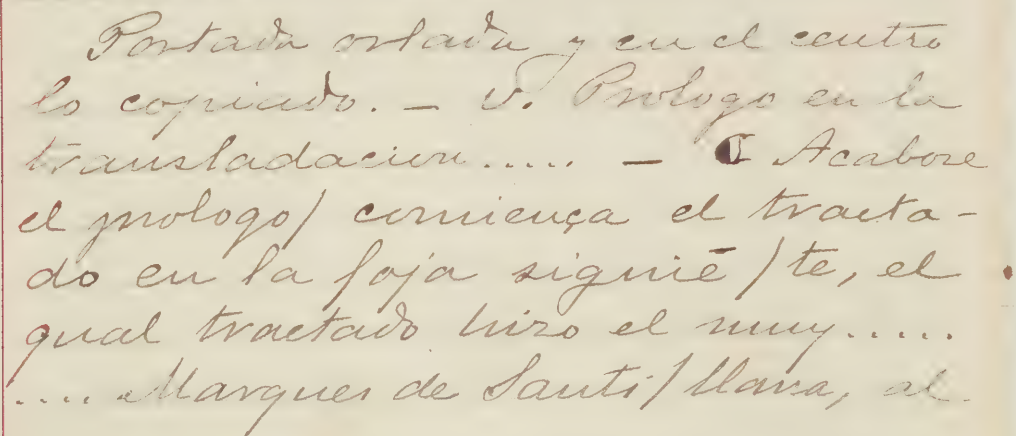 Portada orlada y en el centro
lo copiado. — V. Prologo en la
transladacion..... — ☾ Acabose
el prologo/ comiença el tracta-
do en la foja siguiē/te, el
qual tractado hizo el muy.....
.... Marques de Santi/llana, al